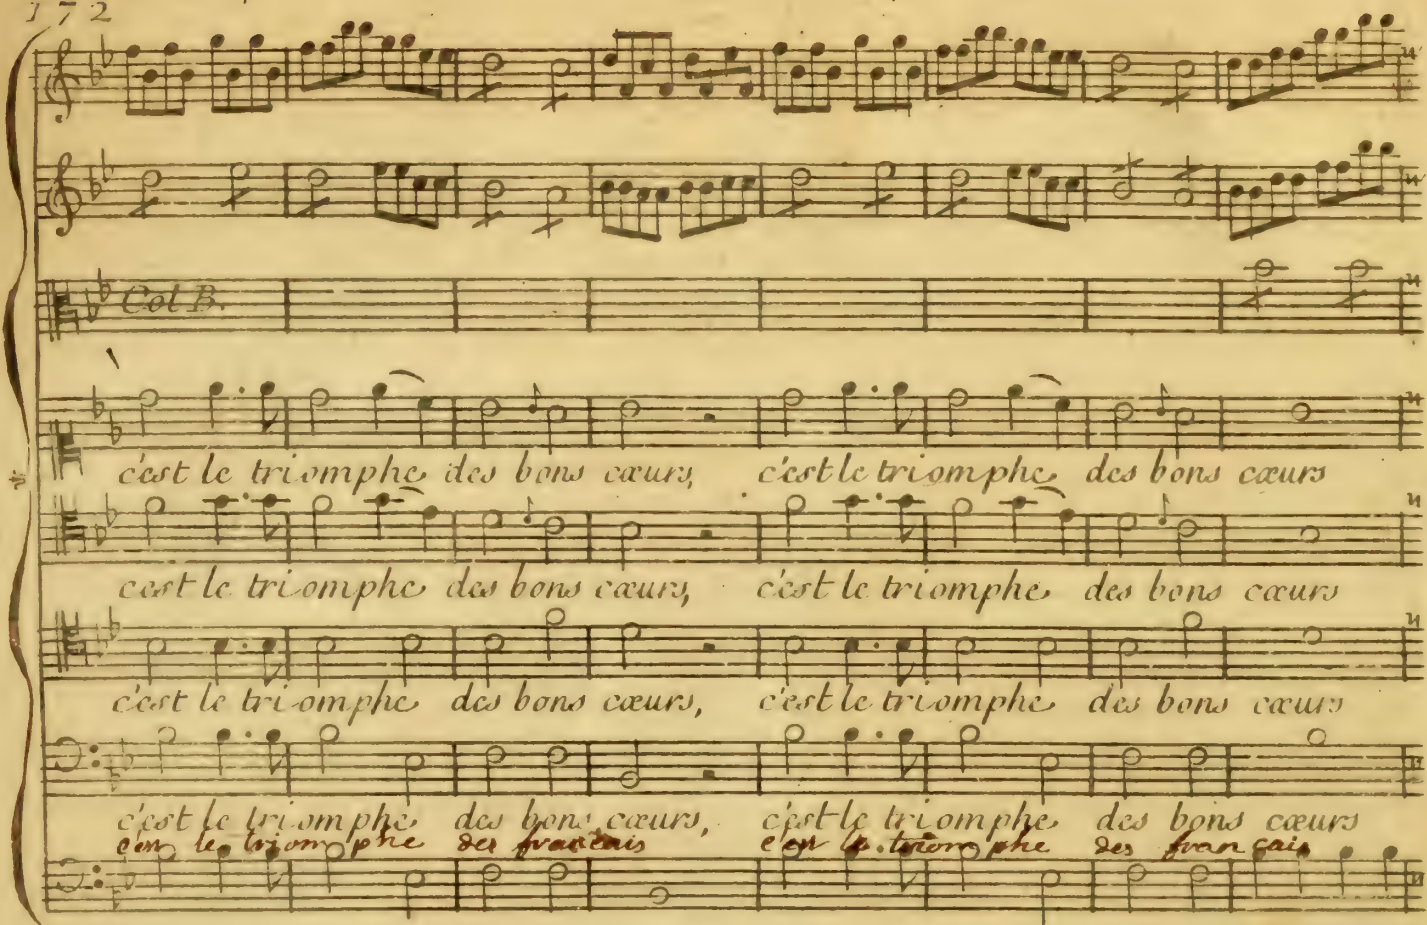 172
Col B.
c'est le triomphe des bons cœurs, c'est le triomphe des bons cœurs
c'est le triomphe des bons cœurs, c'est le triomphe des bons cœurs
c'est le triomphe des bons cœurs, c'est le triomphe des bons cœurs
c'est le triomphe des bons cœurs, c'est le triomphe des bons cœurs
c'est le triomphe des français c'est le triomphe des français